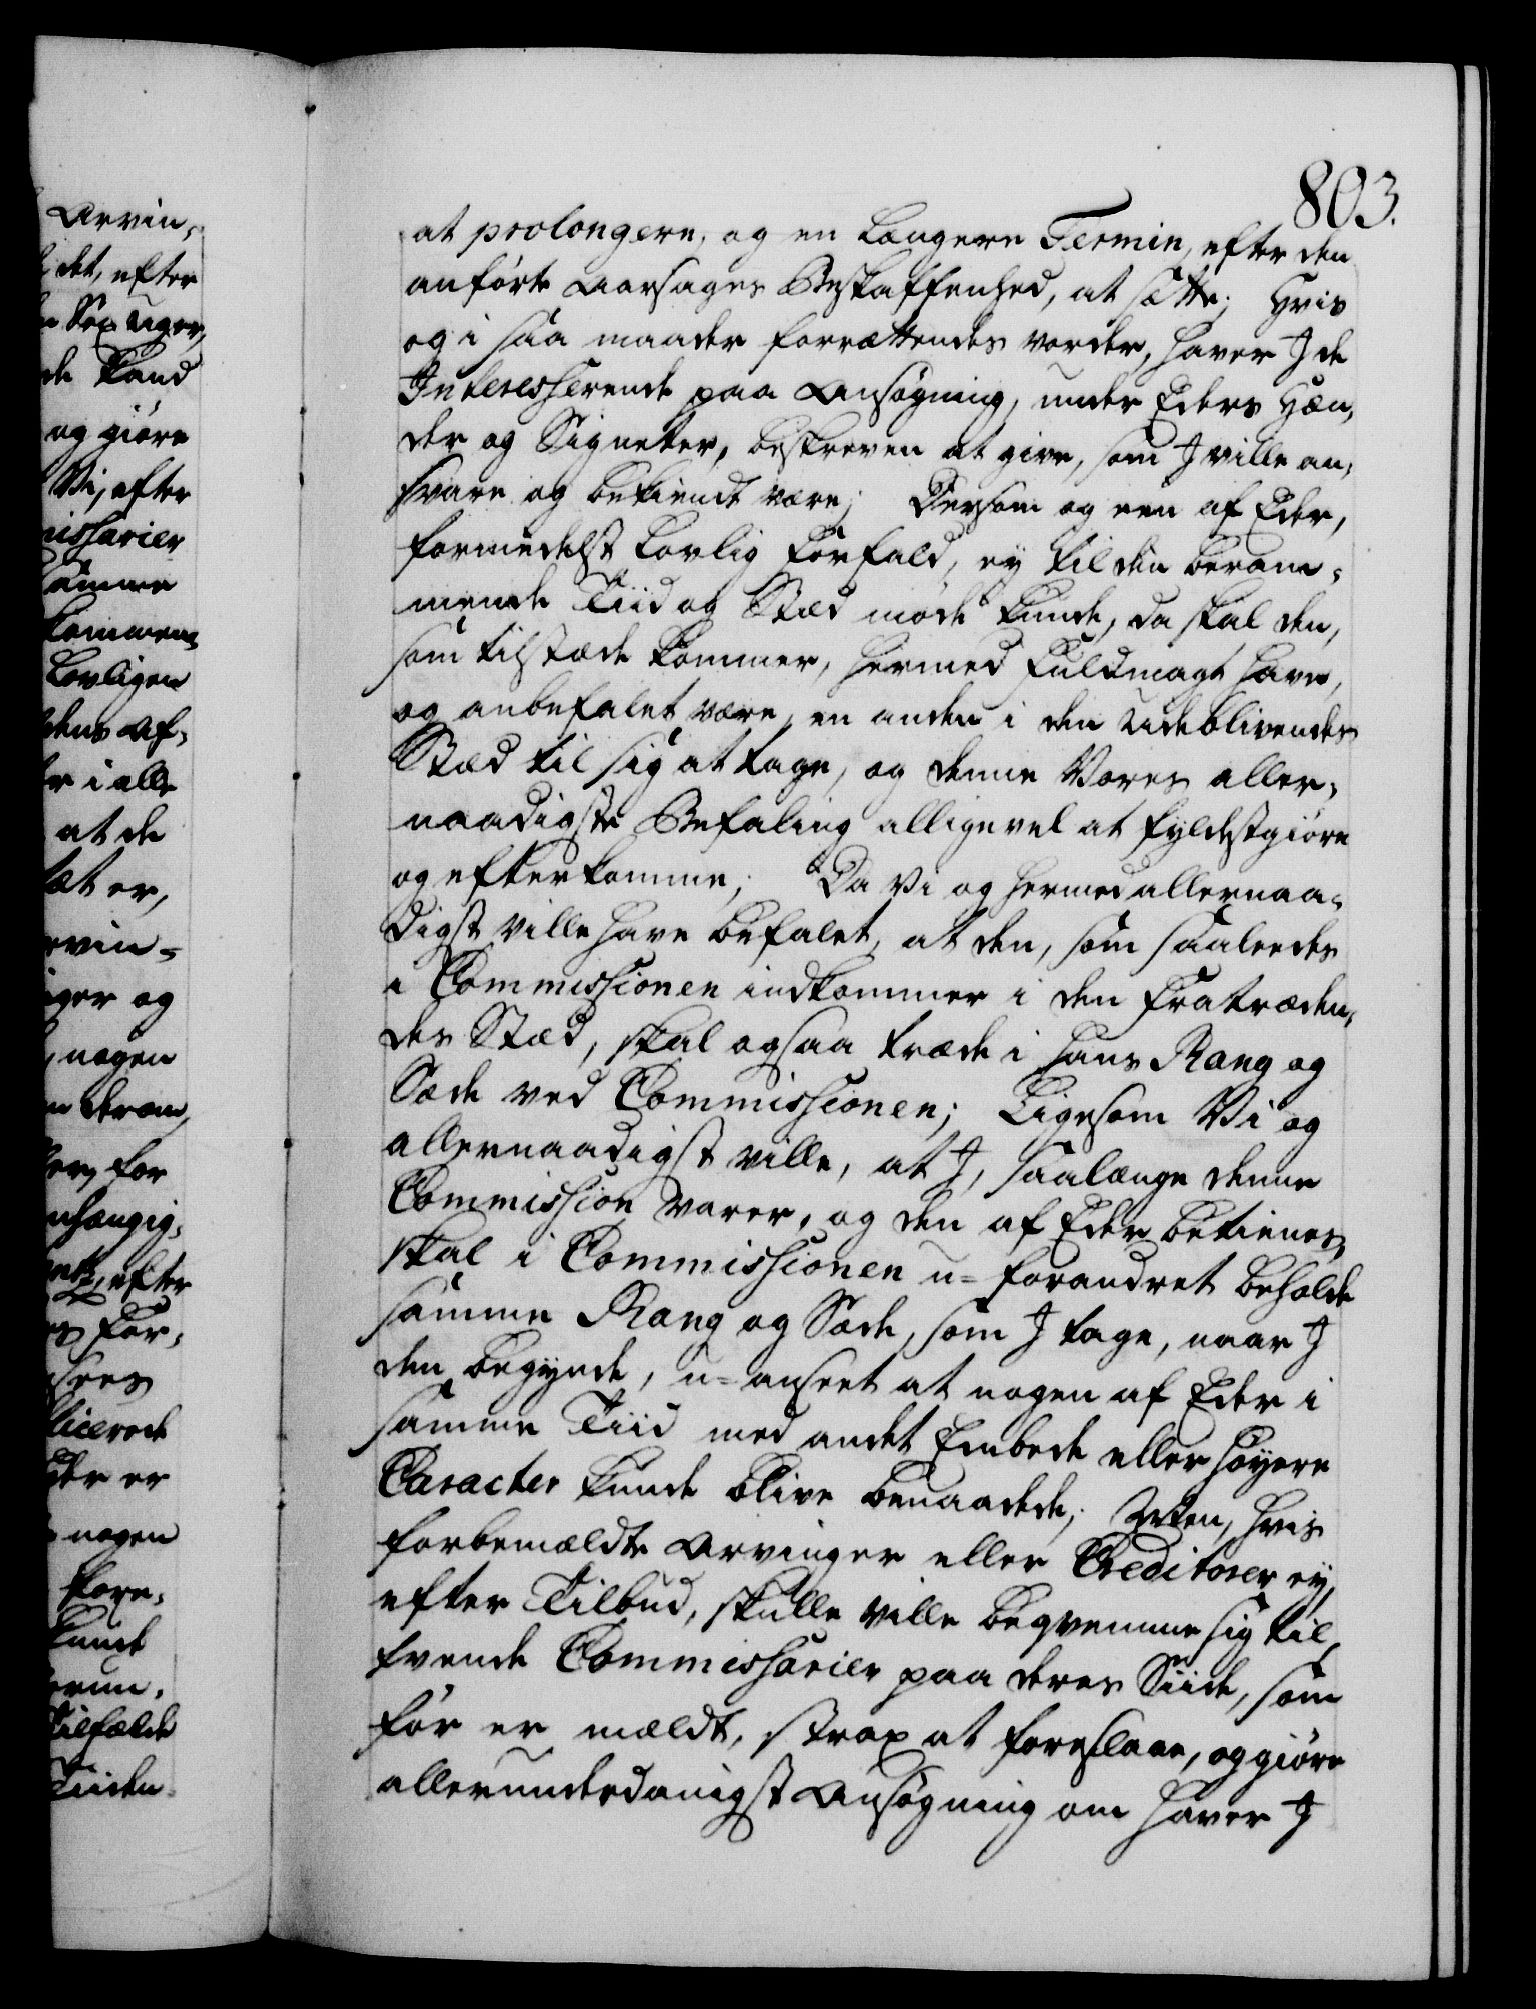 803.
at prolongere, og en Længere Termin, efter den
anførte Aarsages Beskaffenhed, at sætte; Hvis
og i saa maader forrættendes vorder, haver I de
Interesserende paa Ansøgning, under Eders Hæn-
der og Signeter, beskreven at give, som I ville an-
svare og bekiendt være; Dersom og een af Eder,
formedelst Lovlig Forfald, ey til den beram-
mende Tiid og Stæd møde kunde, da skal den,
som tilstæde kommer, hermed Fuldmagt have,
og anbefalet være, en anden i den Udeblivendes
Stæd til sig at tage, og denne Vores aller-
naadigste Befaling alligevel at fyldestgiøre
og efterkomme; Da Vi og hermed allernaa-
digst ville have befalet, at den, som saaleedes
i Commissionen indkommer i den Fratræden-
des Stæd, skal ogsaa træde i hans Rang og
Sæde ved Commissionen; Ligesom Vi og
allernaadigst ville, at I, saalænge denne
Commission varer, og den af Eder betienes,
skal i Commissionen u-forandret beholde
samme Rang og Sæde, som I tage, naar I
den begynde, u-anseet at nogen af Eder i
samme Tiid med andet Embede eller høyere
Caracter kunde blive benaadede; Men, hvis
forbemældte Arvinger eller Creditorer ey,
efter Tilbud, skulle ville beqvemme sig til,
tvende Commissarier paa deres Siide, som
før er mældt, strax at foreslaae, og giøre
allerunderdanigst Ansøgning om haver I
Arvin-
det, efter
Sex Uger,
de kand
og giøre
Vi, efter
missarier
samme
kommen-
Lovligen
dens Af-
r i alle
at de
æt er,
rvin-
iger og
nogen
n derom,
er for
nhængig-
efter
s For-
sees
licerede
der er
nogen
fore-
kunde
erun-
Tilfælde
Tiiden